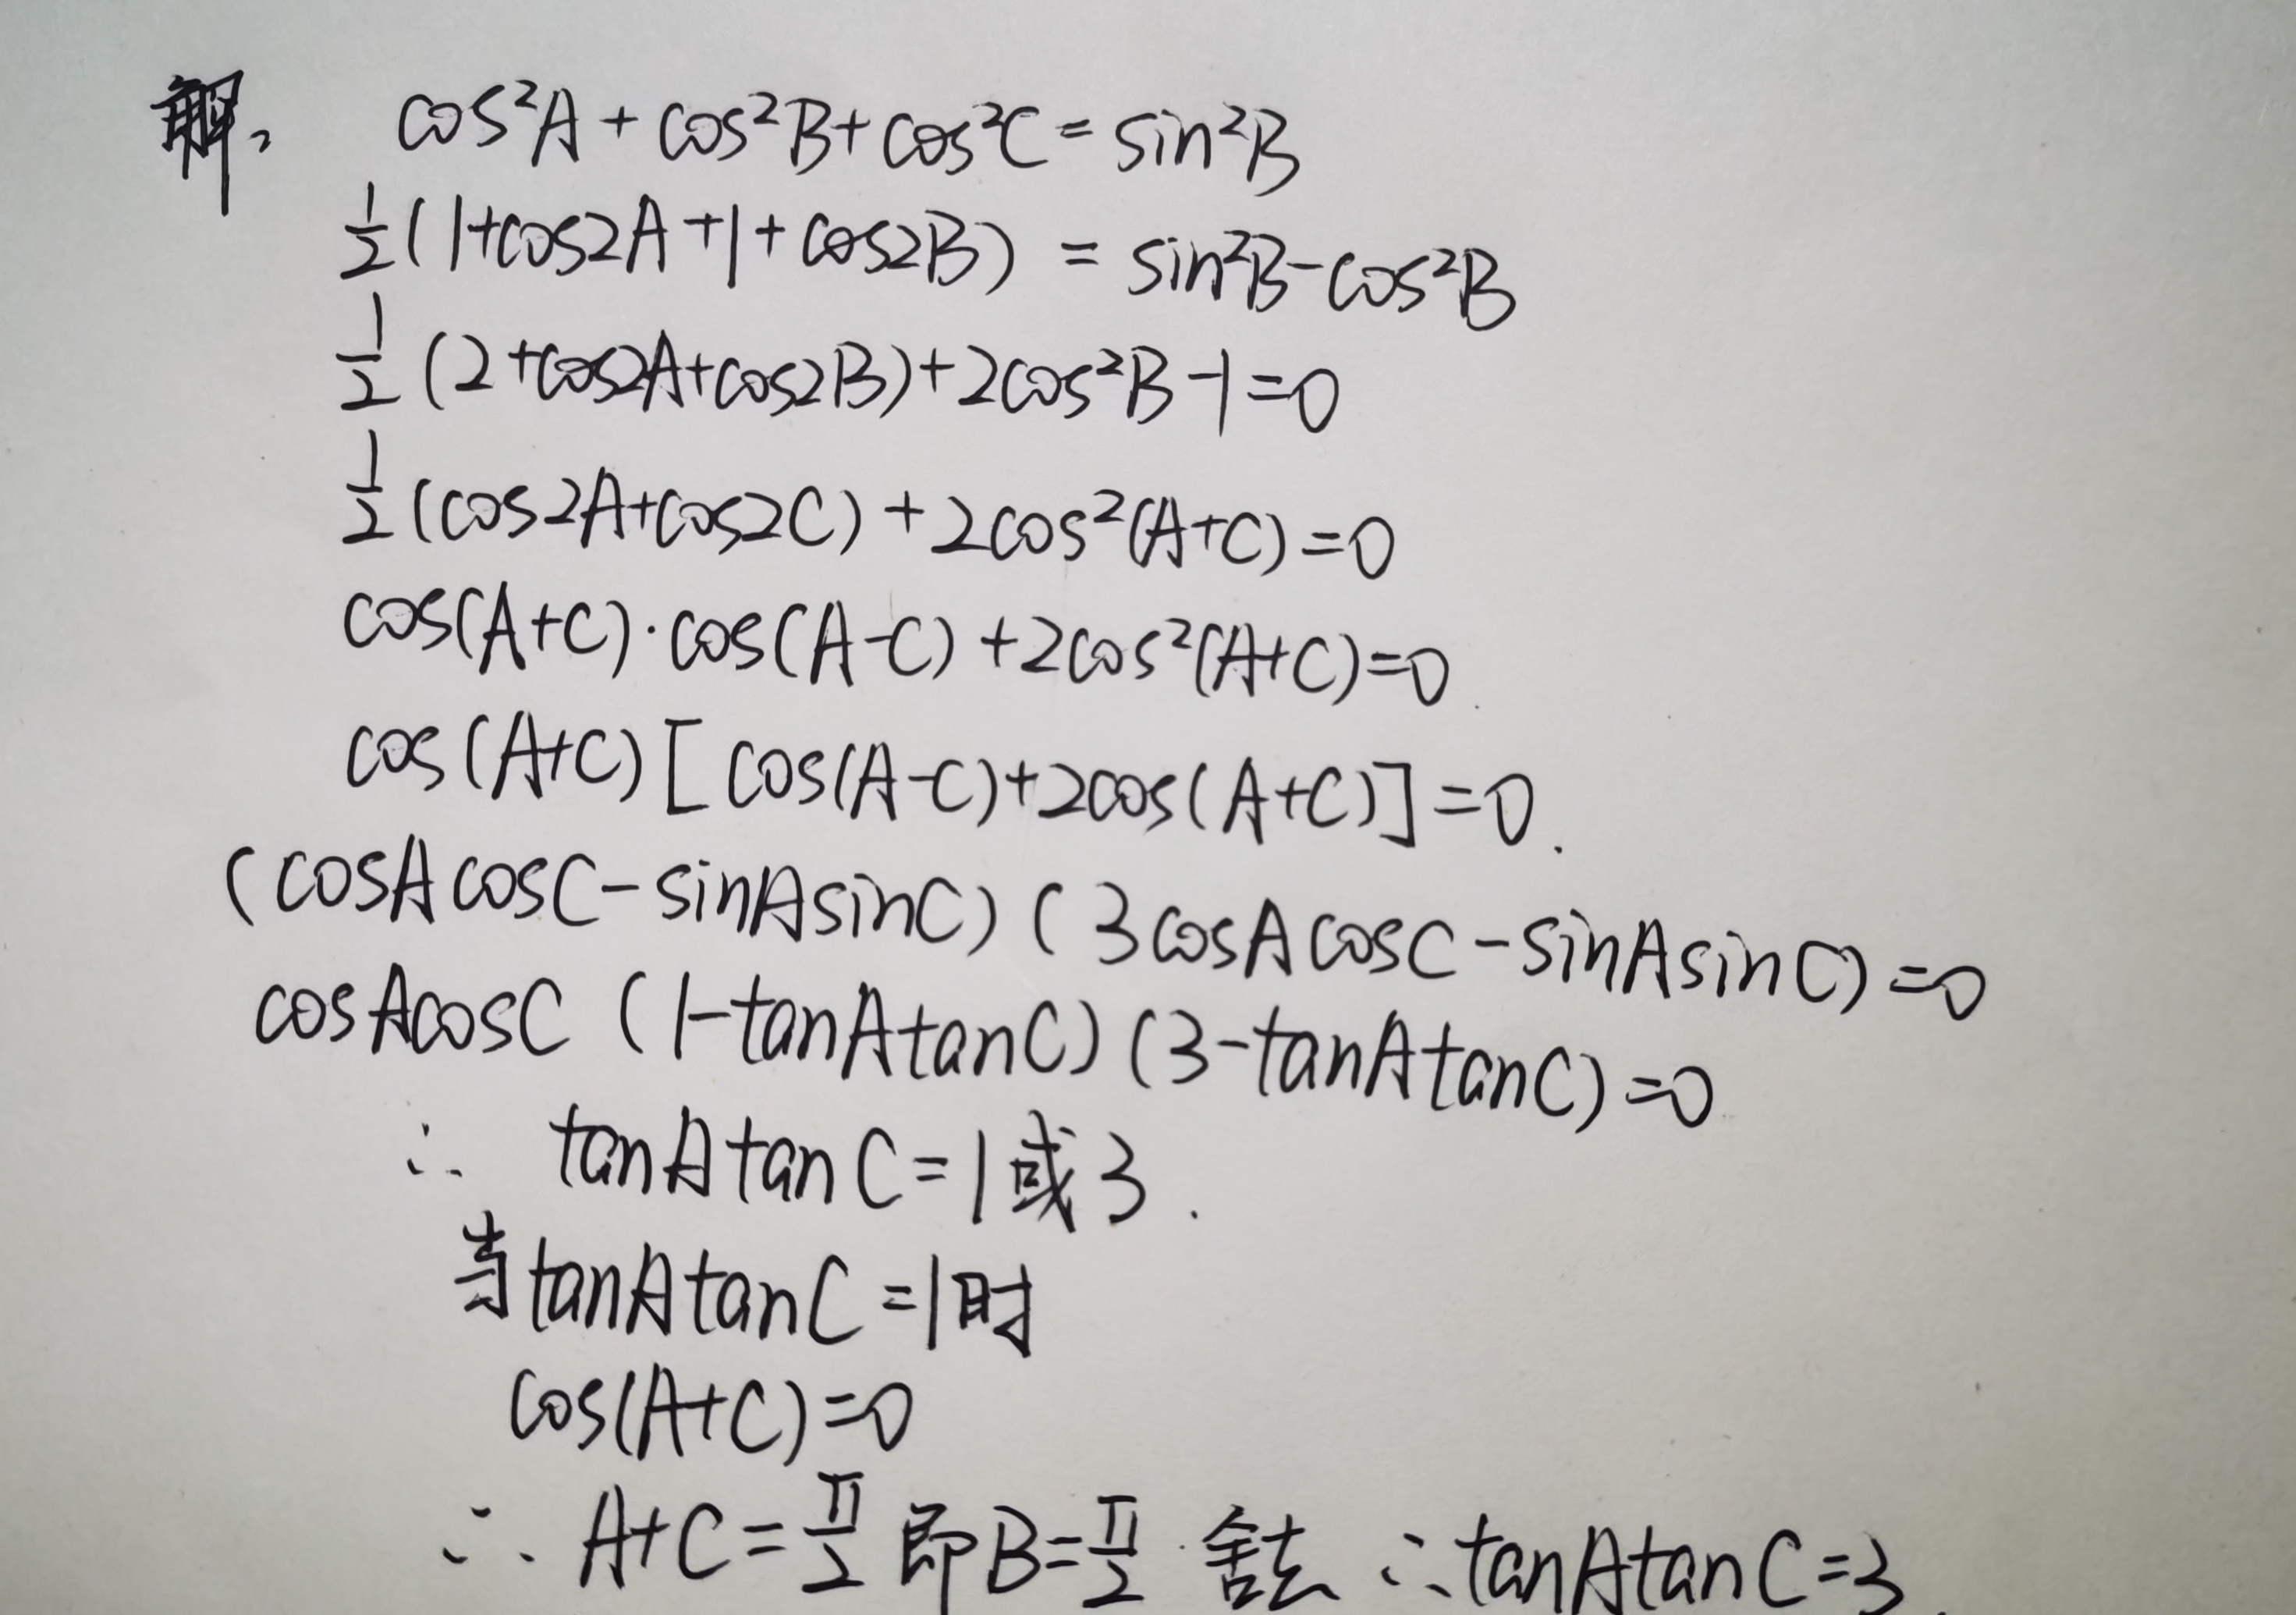 解, cos²A + cos²B + cos²C = sin²B
½(1+cos2A+1+cos2B) = sin²B-cos²B
½(2+cos2A+cos2B)+2cos²B-1=0
½(cos2A+cos2C)+2cos²(A+C)=0
cos(A+C)·cos(A-C)+2cos²(A+C)=0
cos(A+C)[cos(A-C)+2cos(A+C)]=0.
(cosAcosC-sinAsinC)(3cosAcosC-sinAsinC)=0
cosAcosC(1-tanAtanC)(3-tanAtanC)=0
∴ tanAtanC=1或3.
当tanAtanC=1时
cos(A+C)=0
∴ A+C=π/2 即B=π/2. 舍去 ∴tanAtanC=3.